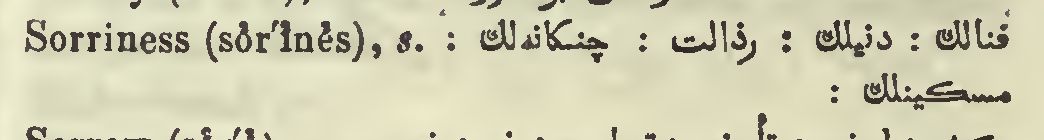 Sorriness (sŏr′ĭnĕs), s. فنالك : دنيلك : رذالت : چنكانه‌لك :
مسكينلك :